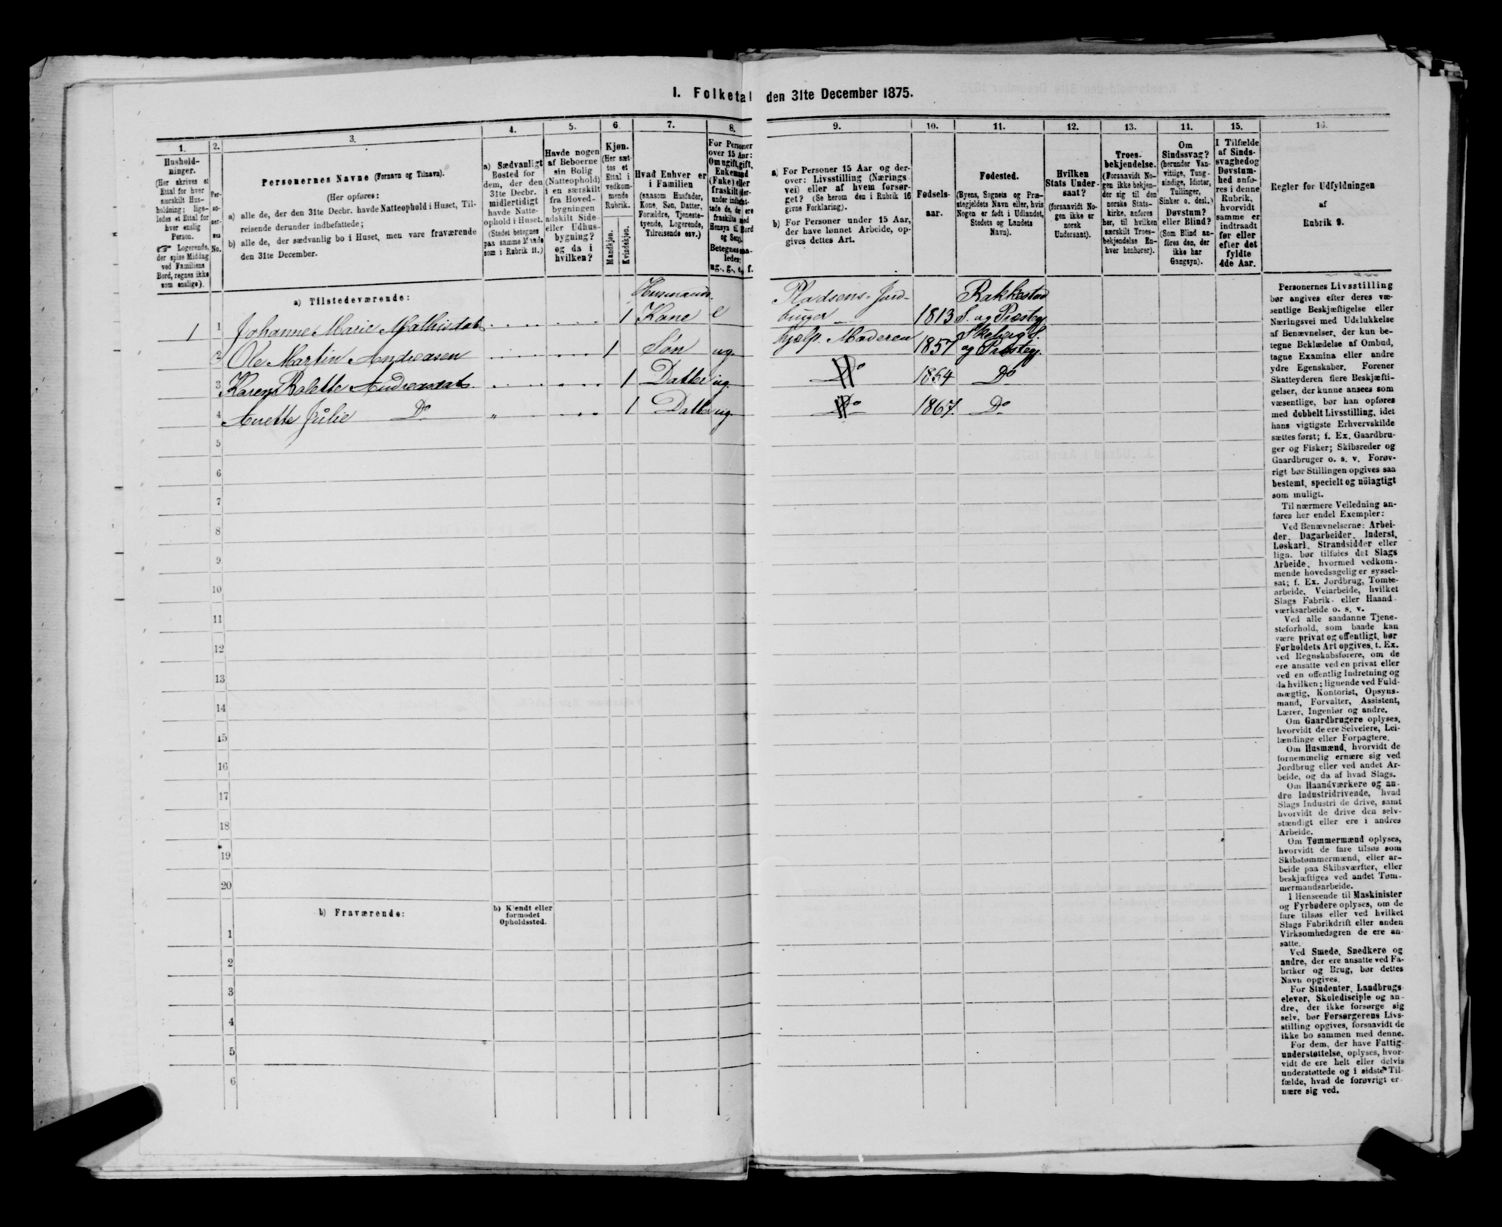 I. Folketal den 31te December 1875.
1.
2.
3.
4.
5.
6.
7.
8.
9.
10.
11.
12.
13.
11.
15.
16.
Hushold-
ninger.
(Her skrives et
Ettal for hver
særskilt Hus-
holdning; lige-
ledes et Ettal for
hver enslig
Person.
☞ Logerende,
der spise Middag
ved Familiens
Bord, regnes ikke
som enslige).
Per-
soner-
nes
No.
Personernes Navne (Fornavn og Tilnavn).
(Her opføres:
a) alle de, der den 31te Decbr. havde Natteophold i Huset, Til-
reisende derunder indbefattede;
b) alle de, der sædvanlig bo i Huset, men vare fraværende
den 31te December.
a) Sædvanligt
Bosted for
dem, der den
31te Decbr.
midlertidigt
havde Natte-
ophold i Huset.
(Stedet betegnes
paa samme Maade
som i Rubrik 11.)
Havde nogen
af Beboerne
sin Bolig
(Natteophold)
i en særskilt
fra Hoved-
bygningen
adskilt Side-
eller Udhus-
bygning?
og da i
hvilken?
Kjøn.
(Her sæt-
tes et
Ettal i
vedkom-
mende
Rubrik.
Mandkjøn.
Kvindekjøn.
Hvad Enhver er
i Familien
(saasom Husfader,
Kone, Søn, Datter,
Forældre, Tjeneste-
tyende, Logerende,
Tilreisende osv.)
For Personer
over 15 Aar:
Om ugift, gift,
Enkemand
(Enke) eller
fraskilt
Betegnes saa-
ledes:
ug., g., e., f.
a) For Personer 15 Aar og der-
over: Livsstilling (Nærings-
vei) eller af hvem forsør-
get? (Se herom den i Rubrik 16
givne Forklaring).
b) For Personer under 15 Aar,
der have lønnet Arbeide, op-
gives dettes Art.
Fødsels-
aar.
Fødested.
(Byens, Sognets og Præ-
stegjeldets Navn eller, hvis
Nogen er født i Udlandet,
Stedets og Landets
Navn).
Hvilken
Stats Under-
saat?
(forsaavidt No-
gen ikke er
norsk
Undersaat).
Troes-
bekjendelse.
(Forsaavidt No-
gen ikke bekjen-
der sig til den
norske Stats-
kirke, anføres
her, til hvilken
særskilt Troes-
bekjendelse En-
hver henhører).
Om
Sindssvag?
(herunder Van-
vittige, Tung-
sindige, Idioter,
Tullinger,
Sinker o. desl.)
Døvstum?
eller Blind?
(Som Blind an-
føres den, der
ikke har
Gangsyn).
I Tilfælde
af Sinds-
svaghed og
Døvstum-
hed anfø-
res i denne
Rubrik,
hvorvidt
samme er
indtraadt
før eller
efter det
fyldte
4de Aar.
Regler for Udfyldningen
af
Rubrik 9.
a) Tilstedeværende:
1 1 Johanne Marie Mathisdat. 1 Husmands Kone e Pladsens Jord-bruger 1813 Rakkestad S. og Præstg.
2 Ole Martin Andreasen 1 Søn ug. hjælp. Moderen 1857 Skjeberg S. og Præsteg.
3 Karen Bolette Andreasdat. 1 Datter ug. Do 1854 Do
4 Anette Julie Do 1 Datter ug Do 1867. Do
5
6
7
8
9
10
11
12
13
14
15
16
17
18
19
20
b) Fraværende:
b) Kjendt eller
formodet
Opholdssted.
1
2
3
4
5
6
Personernes Livsstilling
bør angives efter deres væ-
sentlige Beskjæftigelse eller
Næringsvei med Udelukkelse
af Benævnelser, der kun be-
tegne Beklædelse af Ombud,
tagne Examina eller andre
ydre Egenskaber. Forener
Skatteyderen flere Beskjæfti-
gelser, der kunne ansees som
væsentlige, bør han opføres
med dobbelt Livsstilling, idet
hans vigtigste Erhvervskilde
sættes først; f. Ex. Gaardbru-
ger og Fisker; Skibsreder og
Gaardbruger o. s. v. Forøv-
rigt bør Stillingen opgives saa
bestemt, specielt og nöiagtigt
som muligt.
Til nærmere Veiledning an-
føres her endel Exempler:
Ved Benævnelserne: Arbei-
der, Dagarbeider, Inderst,
Løskarl, Strandsidder eller
lign. bør tilføies det Slags
Arbeide, hvormed vedkom-
mende hovedsagelig er syssel-
sat; f. Ex. Jordbrug, Tomte-
arbeide, Veiarbeide, hvilket
Slags Fabrik- eller Haand-
værksarbeide o. s. v.
Ved alle saadanne Tjene-
steforhold, som baade kan
være privat og offentligt, bør
Forholdets Art opgives, t. Ex.
ved Regnskabsførere, om de
ere ansatte ved en privat eller
ved en offentlig Indretning og
da hvilken; lignende ved Fuld-
mægtig, Kontorist, Opsyns-
mand, Forvalter, Assistent,
Lærer, Ingeniør og andre.
Om Gaardbrugere oplyses,
hvorvidt de ere Selveiere, Lei-
lændinge eller Forpagtere.
Om Husmænd, hvorvidt de
fornemmelig ernære sig ved
Jordbrug eller ved andet Ar-
beide, og da af hvad Slags.
Om Haandværkere og an-
dre Industridrivende, hvad
Slags Industri de drive, samt
hvorvidt de drive den selv-
stændigt eller ere i andres
Arbeide.
Om Tømmermænd oplyses,
hvorvidt de fare tilsøs som
Skibstømmermænd, eller ar-
beide paa Skibsværfter, eller
beskjæftiges ved andet Tøm-
mermandsarbeide.
I Henseende til Maskinister
og Fyrbødere oplyses, om de
fare tilsøs eller ved hvilket
Slags Fabrikdrift eller anden
Virksomhedsgren de ere an-
satte.
Ved Smede, Snedkere og
andre, der ere ansatte ved Fa-
briker og Brug, bør dettes
Navn opgives.
For Studenter, Landbrugs-
elever, Skoledisciple og an-
dre, der ikke forsørge sig
selv, bør Forsørgerens Livs-
stilling opgives, forsaavidt de
ikke bo sammen med denne.
For dem, der have Fattig-
understøttelse, oplyses, hvor-
vidt de ere helt eller delvis
understøttede og i sidste Til-
fælde, hvad de forøvrigt er-
nære sig ved.